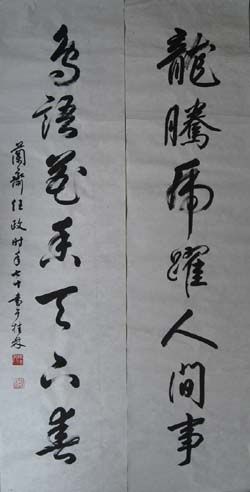 龍騰虎躍人間事
鳥語花香天下春
蘭齋任政时年七十書于桂林